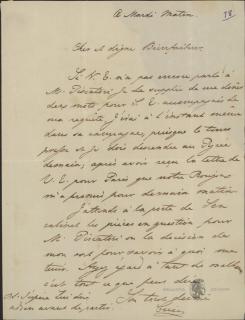 A Mardi Matin
Cher et digne Bienfaiteur
Si V. E. n'a pas encore parlé à
M. Piscatori je la supplie de me donner
deux mots pour S. E. accompagnés de
ma requête j'irai à l'instant même
dans sa campagne, puisque le temps
presse et je dois descendre au Pyrée
demain, après avoir reçu la lettre de
V. E. pour Paris que notre
m'a promis pour demain matin
J'attends à la porte de son
cabinet les pièces en question pour
M. Piscatori ou la décision de
mon sort pour savoir à quoi m'en
tenir. Ayez égard à tant de
c'est tout ce que peut dire
Son très
adieu avant de partir.